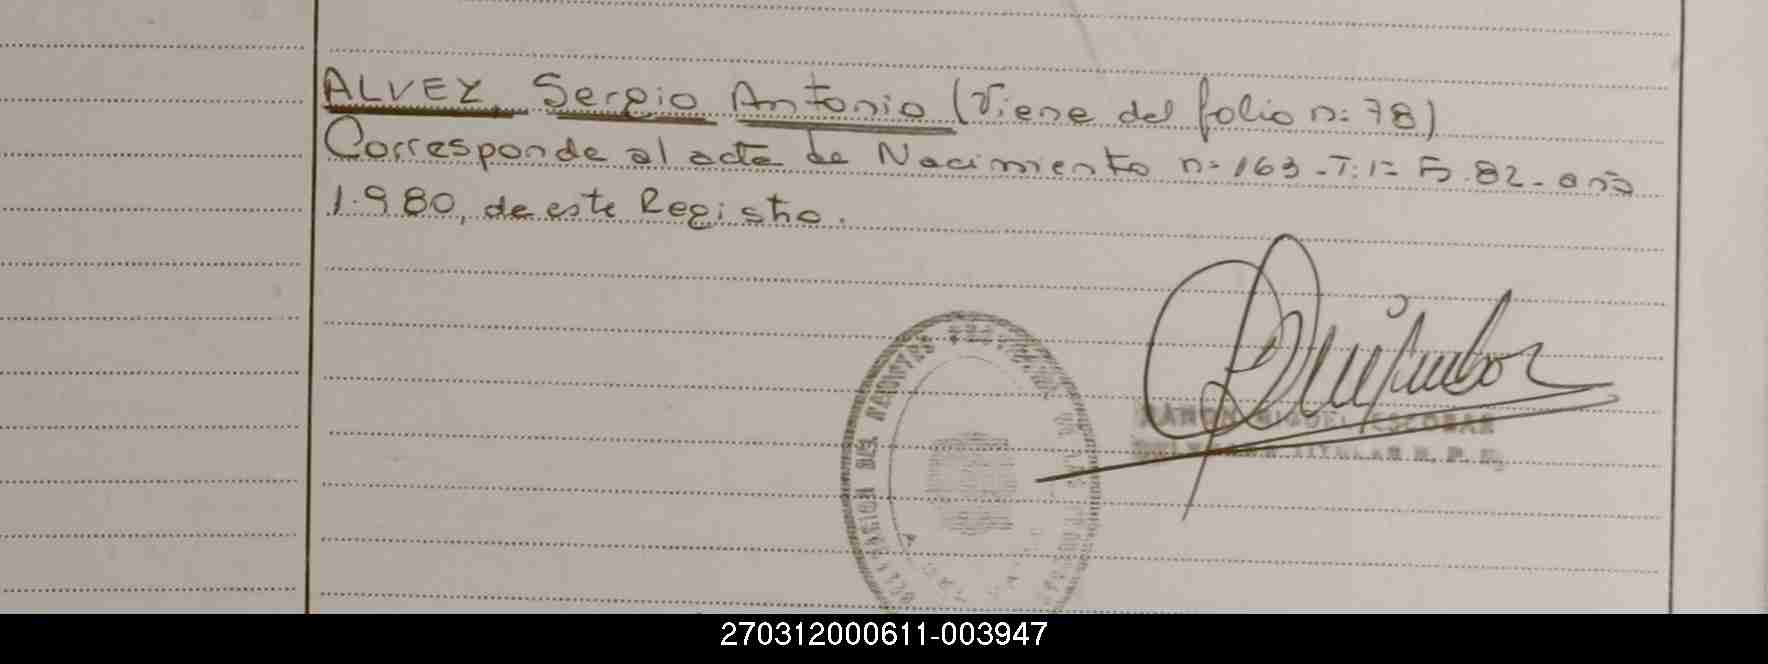 ALVEZ, Sergio Antonio (Viene del folio n: 78)
Corresponde al acta de Nacimiento n= 163 - T: 1= F. 82 - año
1.980, de este Registro.
RAMON MIGUEL ESCOBAR
TITULAR R. P. P.
DEL
270312000611-003947